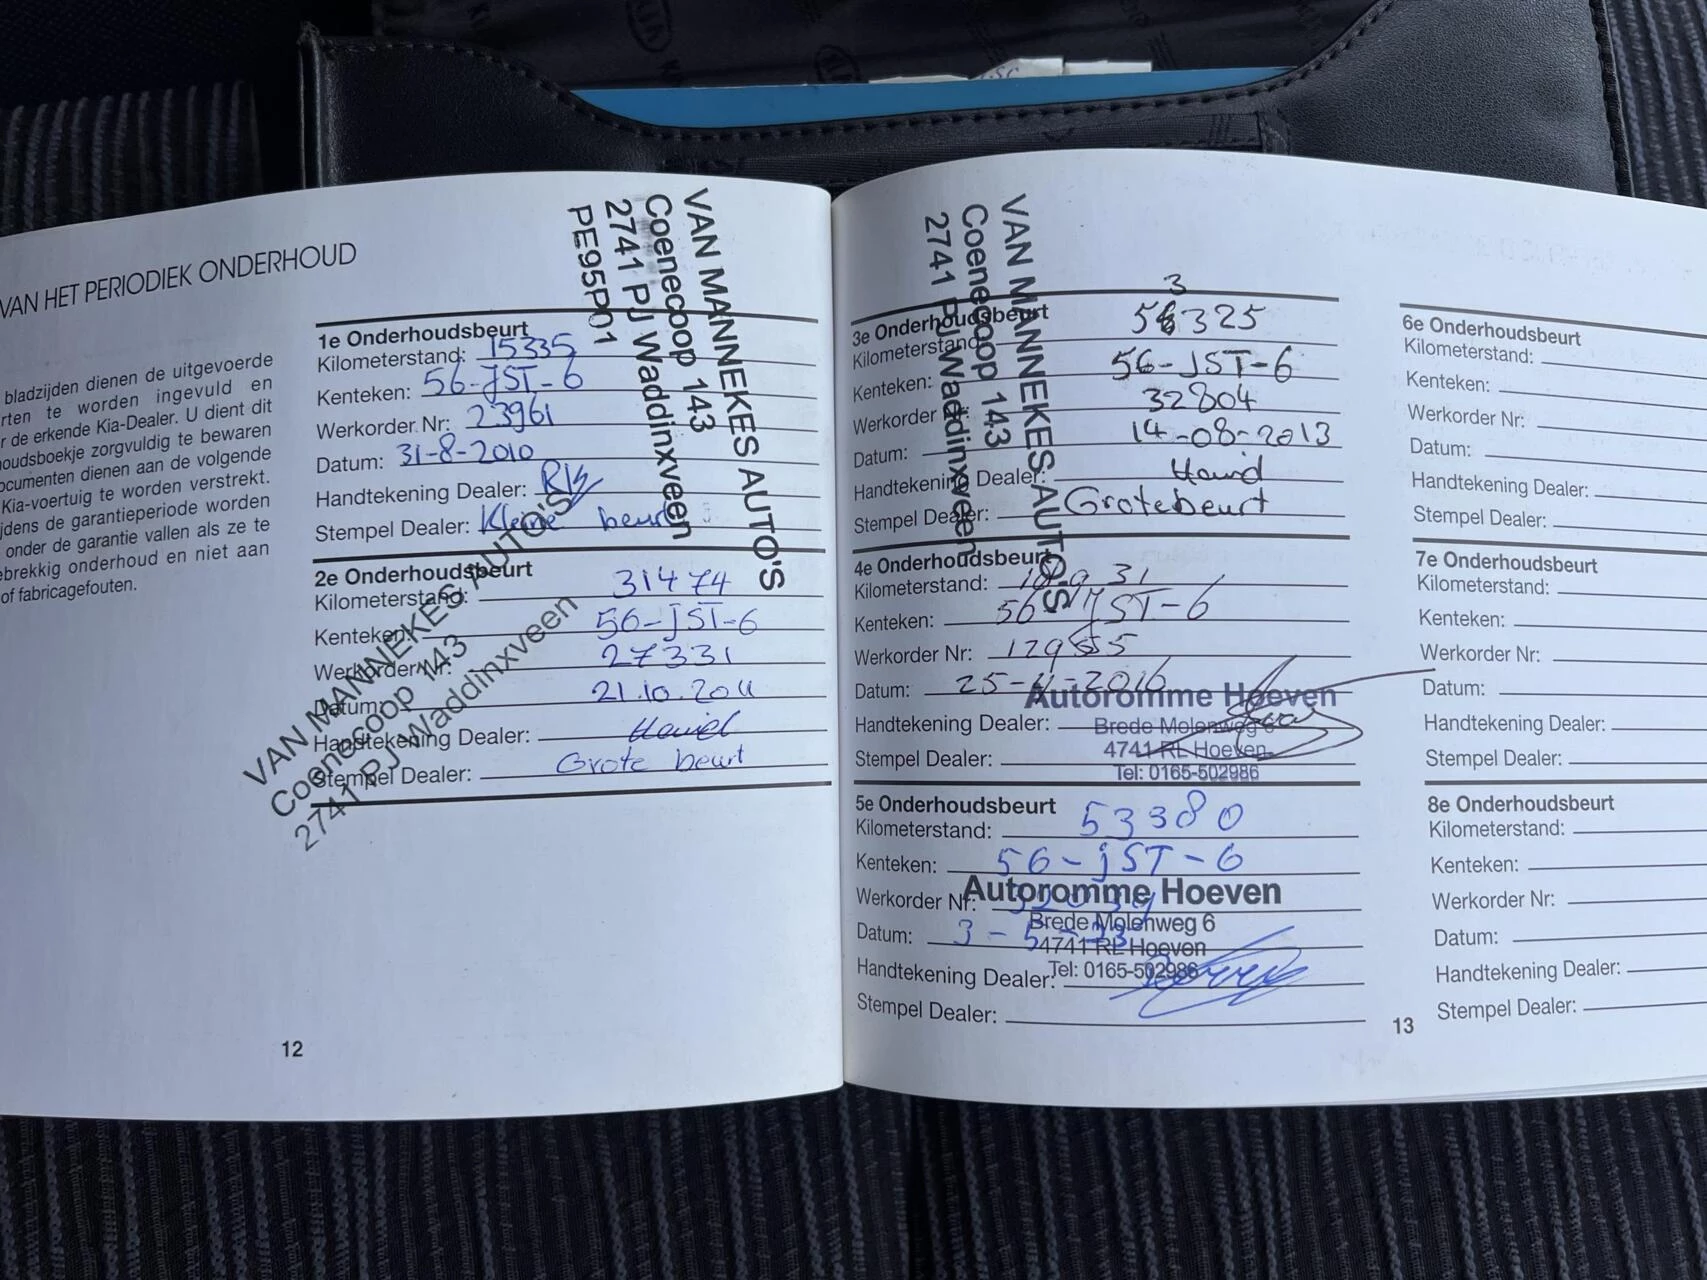 VAN HET PERIODIEK ONDERHOUD
bladzijden dienen de uitgevoerde
rten te worden ingevuld en
r de erkende Kia-Dealer. U dient dit
oudsboekje zorgvuldig te bewaren
ocumenten dienen aan de volgende
Kia-voertuig te worden verstrekt.
jdens de garantieperiode worden
onder de garantie vallen als ze te
ebrekkig onderhoud en niet aan
of fabricagefouten.
1e Onderhoudsbeurt
Kilometerstand: 15335
Kenteken: 56-JST-6
Werkorder Nr: 23961
Datum: 31-8-2010
Handtekening Dealer:
Stempel Dealer: Kleine beurt
VAN MANNEKES AUTO'S
Coenecoop 143
2741 PJ Waddinxveen
PE95P01
2e Onderhoudsbeurt
Kilometerstand: 31474
Kenteken: 56-JST-6
Werkorder Nr: 27331
Datum: 21.10.2011
Handtekening Dealer:
Stempel Dealer: Grote beurt
VAN MANNEKES AUTO'S
Coenecoop 143
2741 PJ Waddinxveen
12
3e Onderhoudsbeurt
3
Kilometerstand: 56325
Kenteken: 56-JST-6
Werkorder 32804
Datum: 14-08-2013
Handtekening Dealer:
Stempel Dealer: Grote beurt
VAN MANNEKES AUTO'S
Coenecoop 143
2741 PJ Waddinxveen
4e Onderhoudsbeurt
Kilometerstand:
Kenteken: 56-JST-6
Werkorder Nr:
Datum: 25-4-2016
Handtekening Dealer:
Stempel Dealer:
Autoromme Hoeven
Brede Molenweg 6
4741 RL Hoeven
Tel: 0165-502986
5e Onderhoudsbeurt
Kilometerstand: 53380
Kenteken: 56-JST-6
Werkorder Nr:
Datum: 3-5-
Handtekening Dealer:
Stempel Dealer:
Autoromme Hoeven
Brede Molenweg 6
4741 RL Hoeven
Tel: 0165-502986
6e Onderhoudsbeurt
Kilometerstand:
Kenteken:
Werkorder Nr:
Datum:
Handtekening Dealer:
Stempel Dealer:
7e Onderhoudsbeurt
Kilometerstand:
Kenteken:
Werkorder Nr:
Datum:
Handtekening Dealer:
Stempel Dealer:
8e Onderhoudsbeurt
Kilometerstand:
Kenteken:
Werkorder Nr:
Datum:
Handtekening Dealer:
Stempel Dealer:
13
KIA